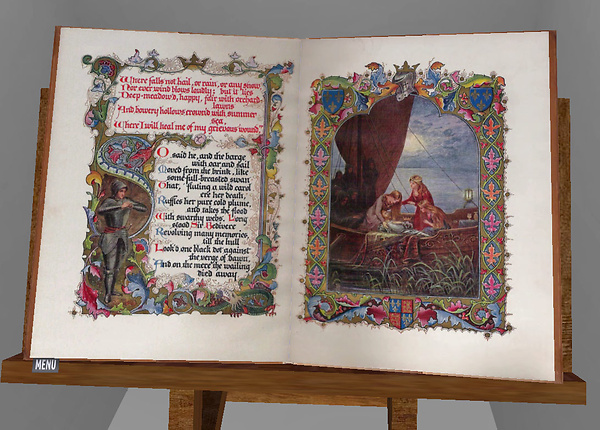 Where falls not hail, or rain, or any snow,
Nor ever wind blows loudly; but it lies
Deep-meadow'd, happy, fair with orchard
lawns
And bowery hollows crown'd with summer
sea,
Where I will heal me of my grievous wound.
SO said he, and the barge
with oar and sail
Moved from the brink, like
some full-breasted swan
That, fluting a wild carol
ere her death,
Ruffles her pure cold plume,
and takes the flood
With swarthy webs. Long
stood Sir Bedivere
Revolving many memories,
till the hull
Look'd one black dot against
the verge of dawn,
And on the mere the wailing
died away
MENU